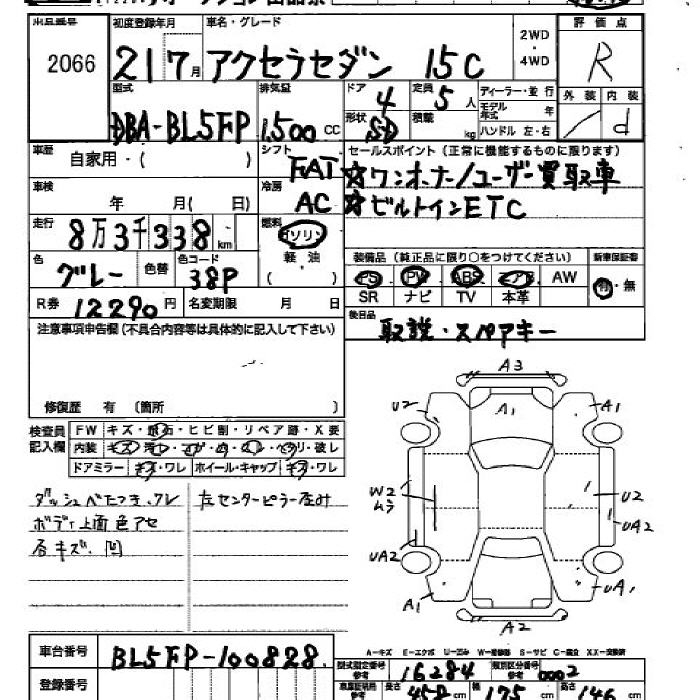 オークション出品票
出品番号 初度登録年月 車名・グレード 2WD・4WD 評価点
2066 21 7月 アクセラセダン 15C R
型式 排気量 ドア 定員 ディーラー・並行 外装 内装
DBA-BL5FP 1,500cc 4 5人 モデル年式 年 / d
形状 SD 積載 kg ハンドル 左・右
車歴 自家用・( ) シフト FAT セールスポイント(正常に機能するものに限ります)
☆ワンオーナー/ユーザー買取車
車検 年 月( 日) 冷房 AC ☆ビルトインETC
走行 8万3千338km 燃料 ガソリン 軽・油 ( )
装備品(純正品に限り○をつけてください) 新車保証書
色 グレー 色替 色コード 38P PS PW ABS エアB AW 有・無
SR ナビ TV 本革
R券 12290円 名変期限 月 日 後日品
取説・スペアキー
注意事項申告欄(不具合内容等は具体的に記入して下さい)
修復歴 有 (箇所 )
検査員記入欄 FW キズ・飛石・ヒビ割・リペア跡・X要
内装 キズ・汚レ・コゲ・穴・スレ・ヘタリ・破レ
ドアミラー キズ・ワレ ホイール・キャップ キズ・ワレ
ダッシュベタつき、ワレ 左センターピラー歪み
ボディ上面色アセ
各キズ、凹
A3
U2 A1 A1
W2 ムラ U2
UA2 UA2
A1 UA1
A2
A-キズ E-エクボ U-凹み W-補修跡 S-サビ C-腐食 XX-交換済
車台番号 BL5FP-100828
型式指定番号 参考 16284 類別区分番号 参考 0002
登録番号 長さ 458cm 幅 175cm 高さ 146cm